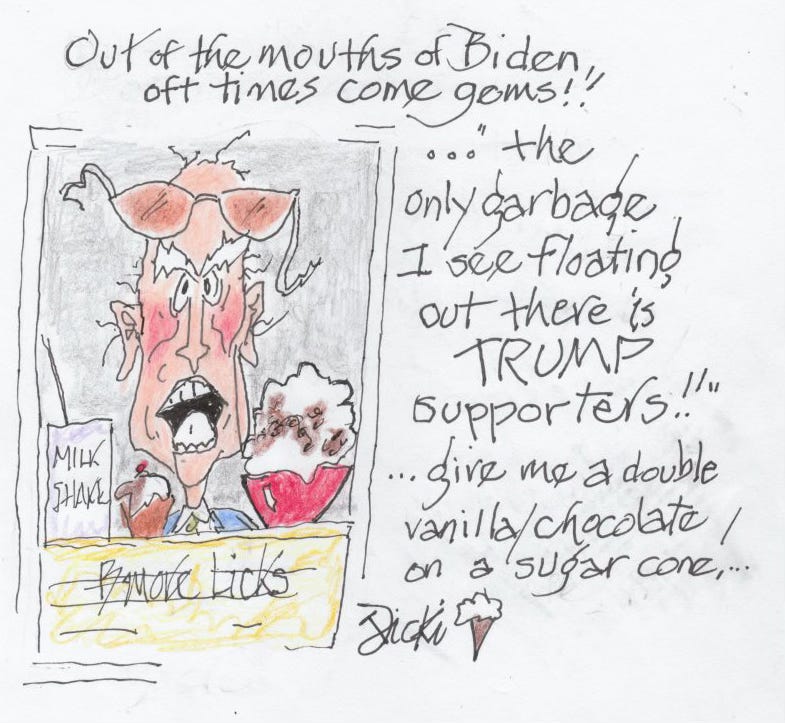 Out of the mouths of Biden,
oft times come gems!!
..." the
only garbage
I see floating
out there is
TRUMP
supporters!!"
... give me a double
vanilla/chocolate
on a sugar cone,...
MILK
SHAKE
Licks
Dicki